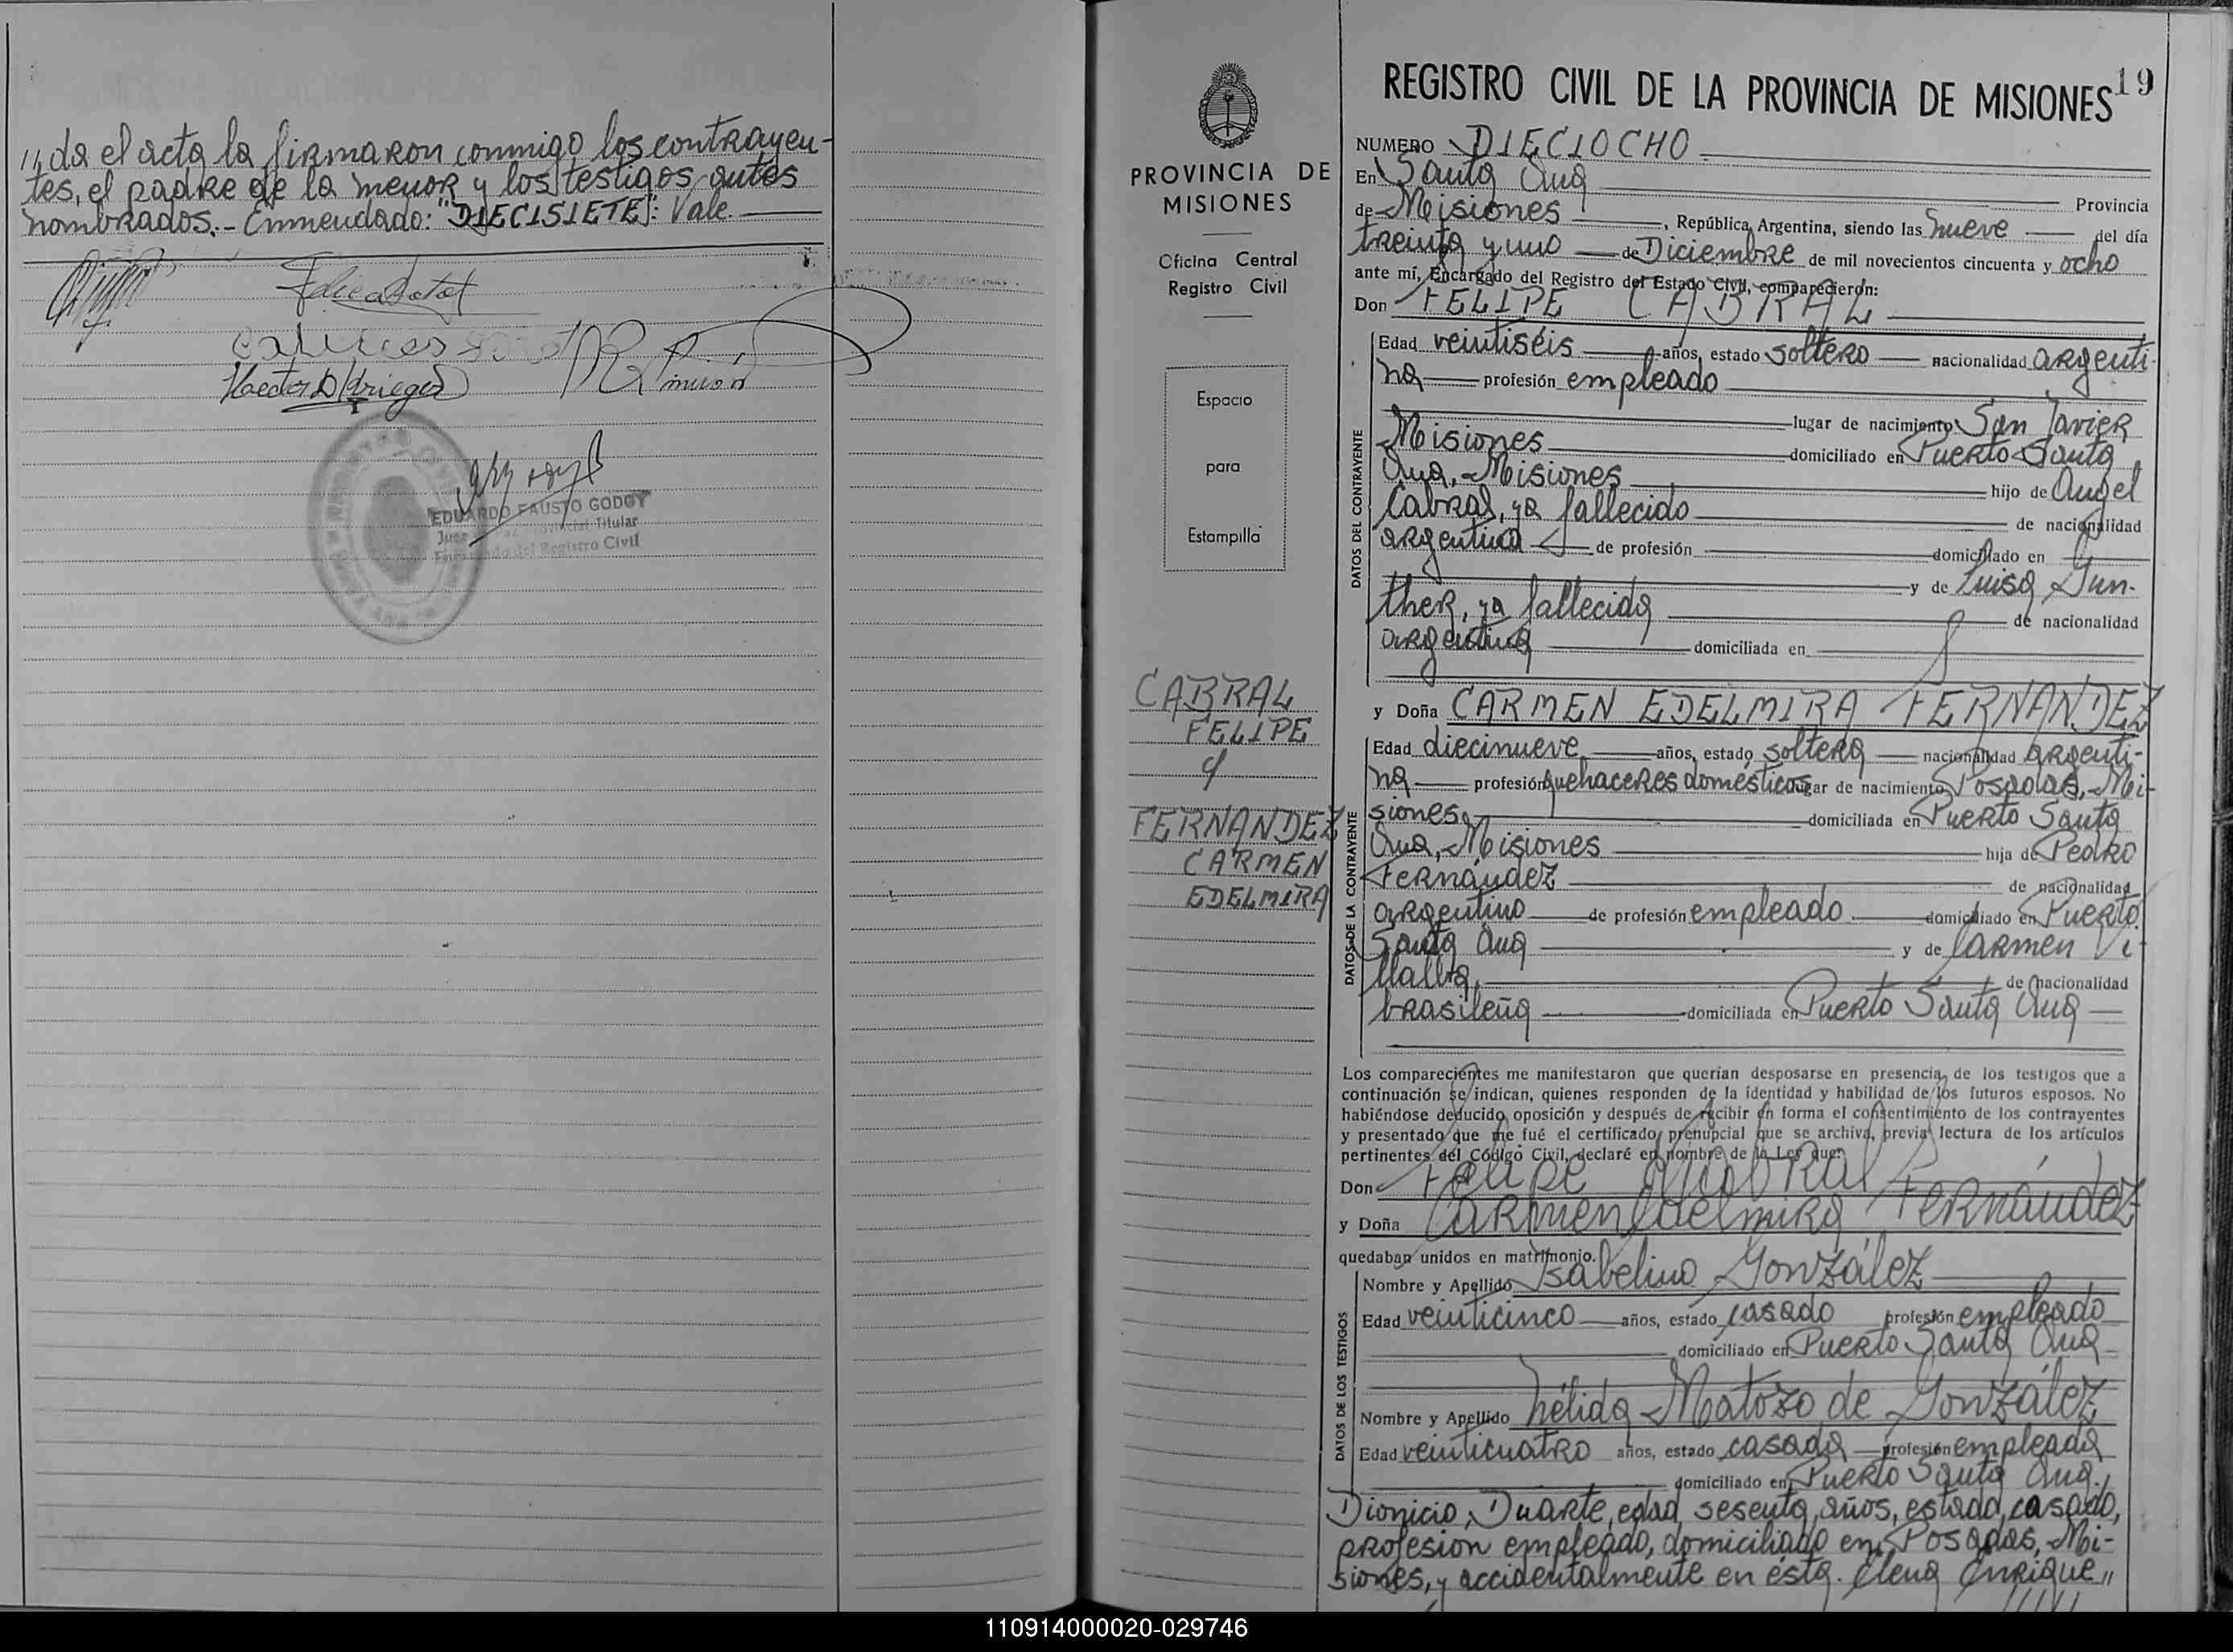 da el acta la firmaron conmigo los contrayen-
tes, el padre de la menor y los testigos antes
nombrados.- Enmendado: "DIECISIETE": Vale.
Hector D Krieger
EDUARDO FAUSTO GODOY
Titular
Registro Civil
PROVINCIA DE
MISIONES
Oficina Central
Registro Civil
Espacio
para
Estampilla
CABRAL
FELIPE
y
FERNANDEZ
CARMEN
EDELMIRA
REGISTRO CIVIL DE LA PROVINCIA DE MISIONES 19
NUMERO DIECIOCHO
En Santa Ana
Provincia
de Misiones, República Argentina, siendo las nueve del día
treinta y uno de Diciembre de mil novecientos cincuenta y ocho
ante mí, Encargado del Registro del Estado Civil, comparecieron:
Don FELIPE CABRAL
DATOS DEL CONTRAYENTE
Edad veintiséis años, estado soltero nacionalidad argenti-
na profesión empleado
lugar de nacimiento San Javier
Misiones domiciliado en Puerto Santa
Ana, Misiones hijo de Angel
Cabral, ya fallecido de nacionalidad
argentina de profesión domiciliado en
y de Luisa Gun-
ther, ya fallecida de nacionalidad
argentina domiciliada en
y Doña CARMEN EDELMIRA FERNANDEZ
DATOS DE LA CONTRAYENTE
Edad diecinueve años, estado soltera nacionalidad argenti-
na profesión quehaceres domésticos lugar de nacimiento Posadas, Mi-
siones, domiciliada en Puerto Santa
Ana, Misiones hija de Pedro
Fernández de nacionalidad
argentino de profesión empleado domiciliado en Puerto
Santa Ana y de Carmen Vi-
llalba, de nacionalidad
brasileña domiciliada en Puerto Santa Ana
Los comparecientes me manifestaron que querían desposarse en presencia de los testigos que a
continuación se indican, quienes responden de la identidad y habilidad de los futuros esposos. No
habiéndose deducido oposición y después de recibir en forma el consentimiento de los contrayentes
y presentado que me fué el certificado prenupcial que se archiva, previa lectura de los artículos
pertinentes del Código Civil, declaré en nombre de la Ley que:
Don Felipe Cabral
y Doña Carmen Edelmira Fernández
quedaban unidos en matrimonio.
DATOS DE LOS TESTIGOS
Nombre y Apellido Isabelino González
Edad veinticinco años, estado casado profesión empleado
domiciliado en Puerto Santa Ana
Nombre y Apellido Nélida Matozo de González
Edad veinticuatro años, estado casada profesión empleada
domiciliado en Puerto Santa Ana.,
Dionicio Duarte, edad sesenta años, estado casado,
profesión empleado, domiciliado en Posadas, Mi-
siones, y accidentalmente en ésta. Elena Enrique
110914000020-029746